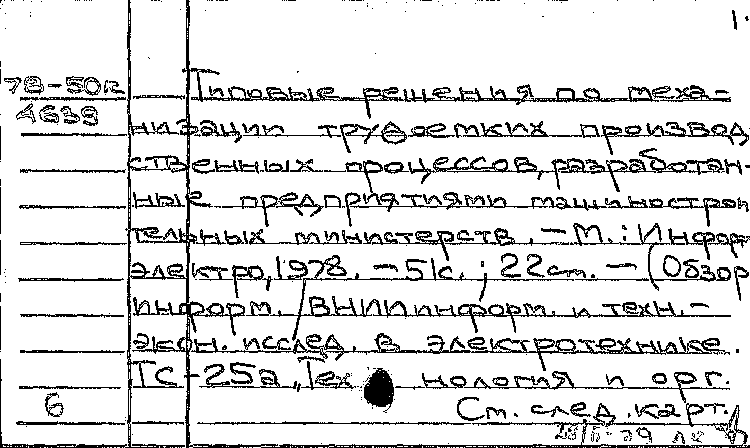 1.
78-50к
4639
Типовые решения по меха-
низации трудоемких производ
ственных процессов, разработан-
ные предприятиями машинострои
тельных министерств. - М.: Информ
электро, 1978. - 51с.; 22см. - (Обзор
информ. /ВНИИ информ. и техн.-
экон. исслед. в электротехнике.
ТС-25а „Тех нология и орг.
6
См. след. карт.